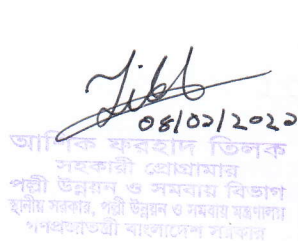 ০৪/০২/২০২০
আশিক ফরহাদ তিলক
সহকারী প্রোগ্রামার
পল্লী উন্নয়ন ও সমবায় বিভাগ
স্থানীয় সরকার, পল্লী উন্নয়ন ও সমবায় মন্ত্রণালয়
গণপ্রজাতন্ত্রী বাংলাদেশ সরকার